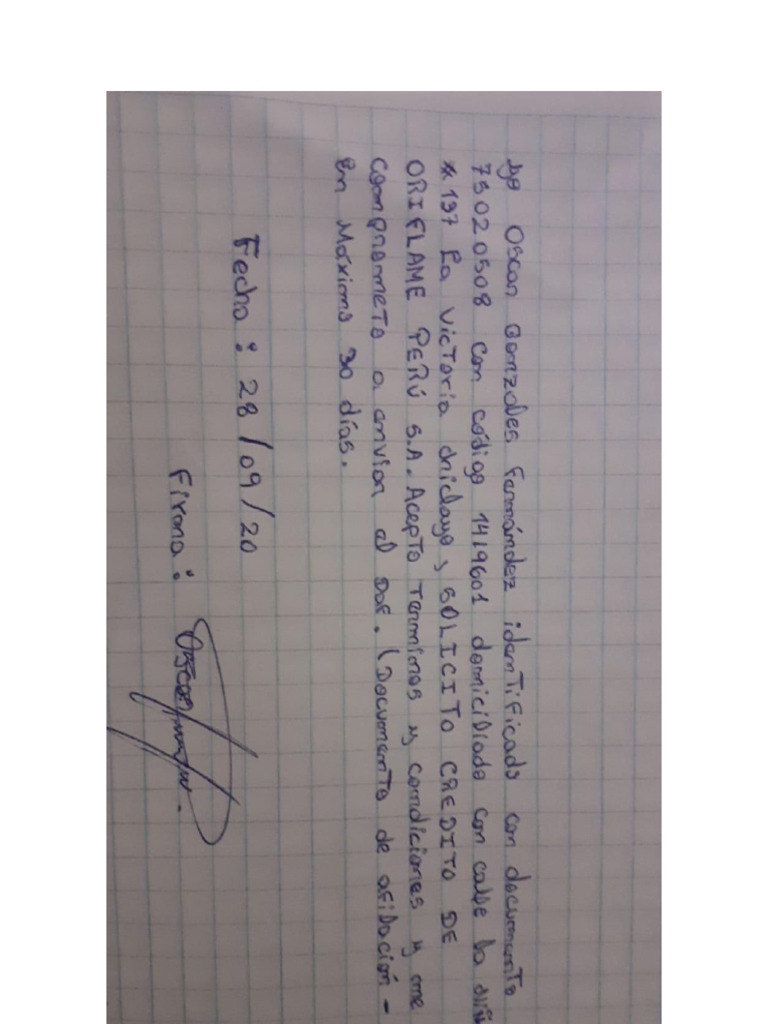 Yo Oscar Gonzales Fernández identificado con documento
75020508 con código 1419601 domiciliado con calle la
*137 La Victoria chiclayo, SOLICITO CREDITO DE
ORIFLAME PERÚ S.A. Acepto Terminos y condiciones y me
comprometo a enviar el Daf. (Documento de afiliación -
en Máximo 30 días.
Fecha: 28/09/20
Firma: